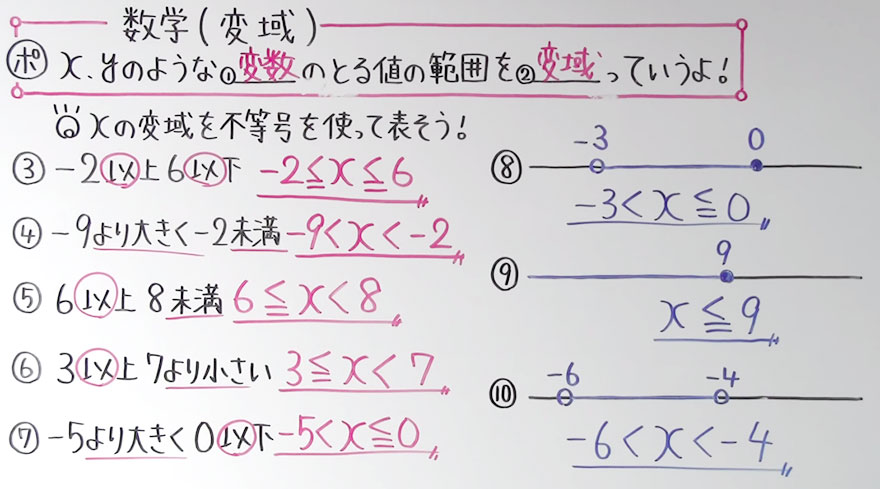 数学(変域)
ポ x、yのような①変数のとる値の範囲を②変域っていうよ!
xの変域を不等号を使って表そう!
③ -2以上6以下 -2≦x≦6
④ -9より大きく-2未満 -9<x<-2
⑤ 6以上8未満 6≦x<8
⑥ 3以上7より小さい 3≦x<7
⑦ -5より大きく0以下 -5<x≦0
⑧ -3 0
-3<x≦0
⑨ 9
x≦9
⑩ -6 -4
-6<x<-4